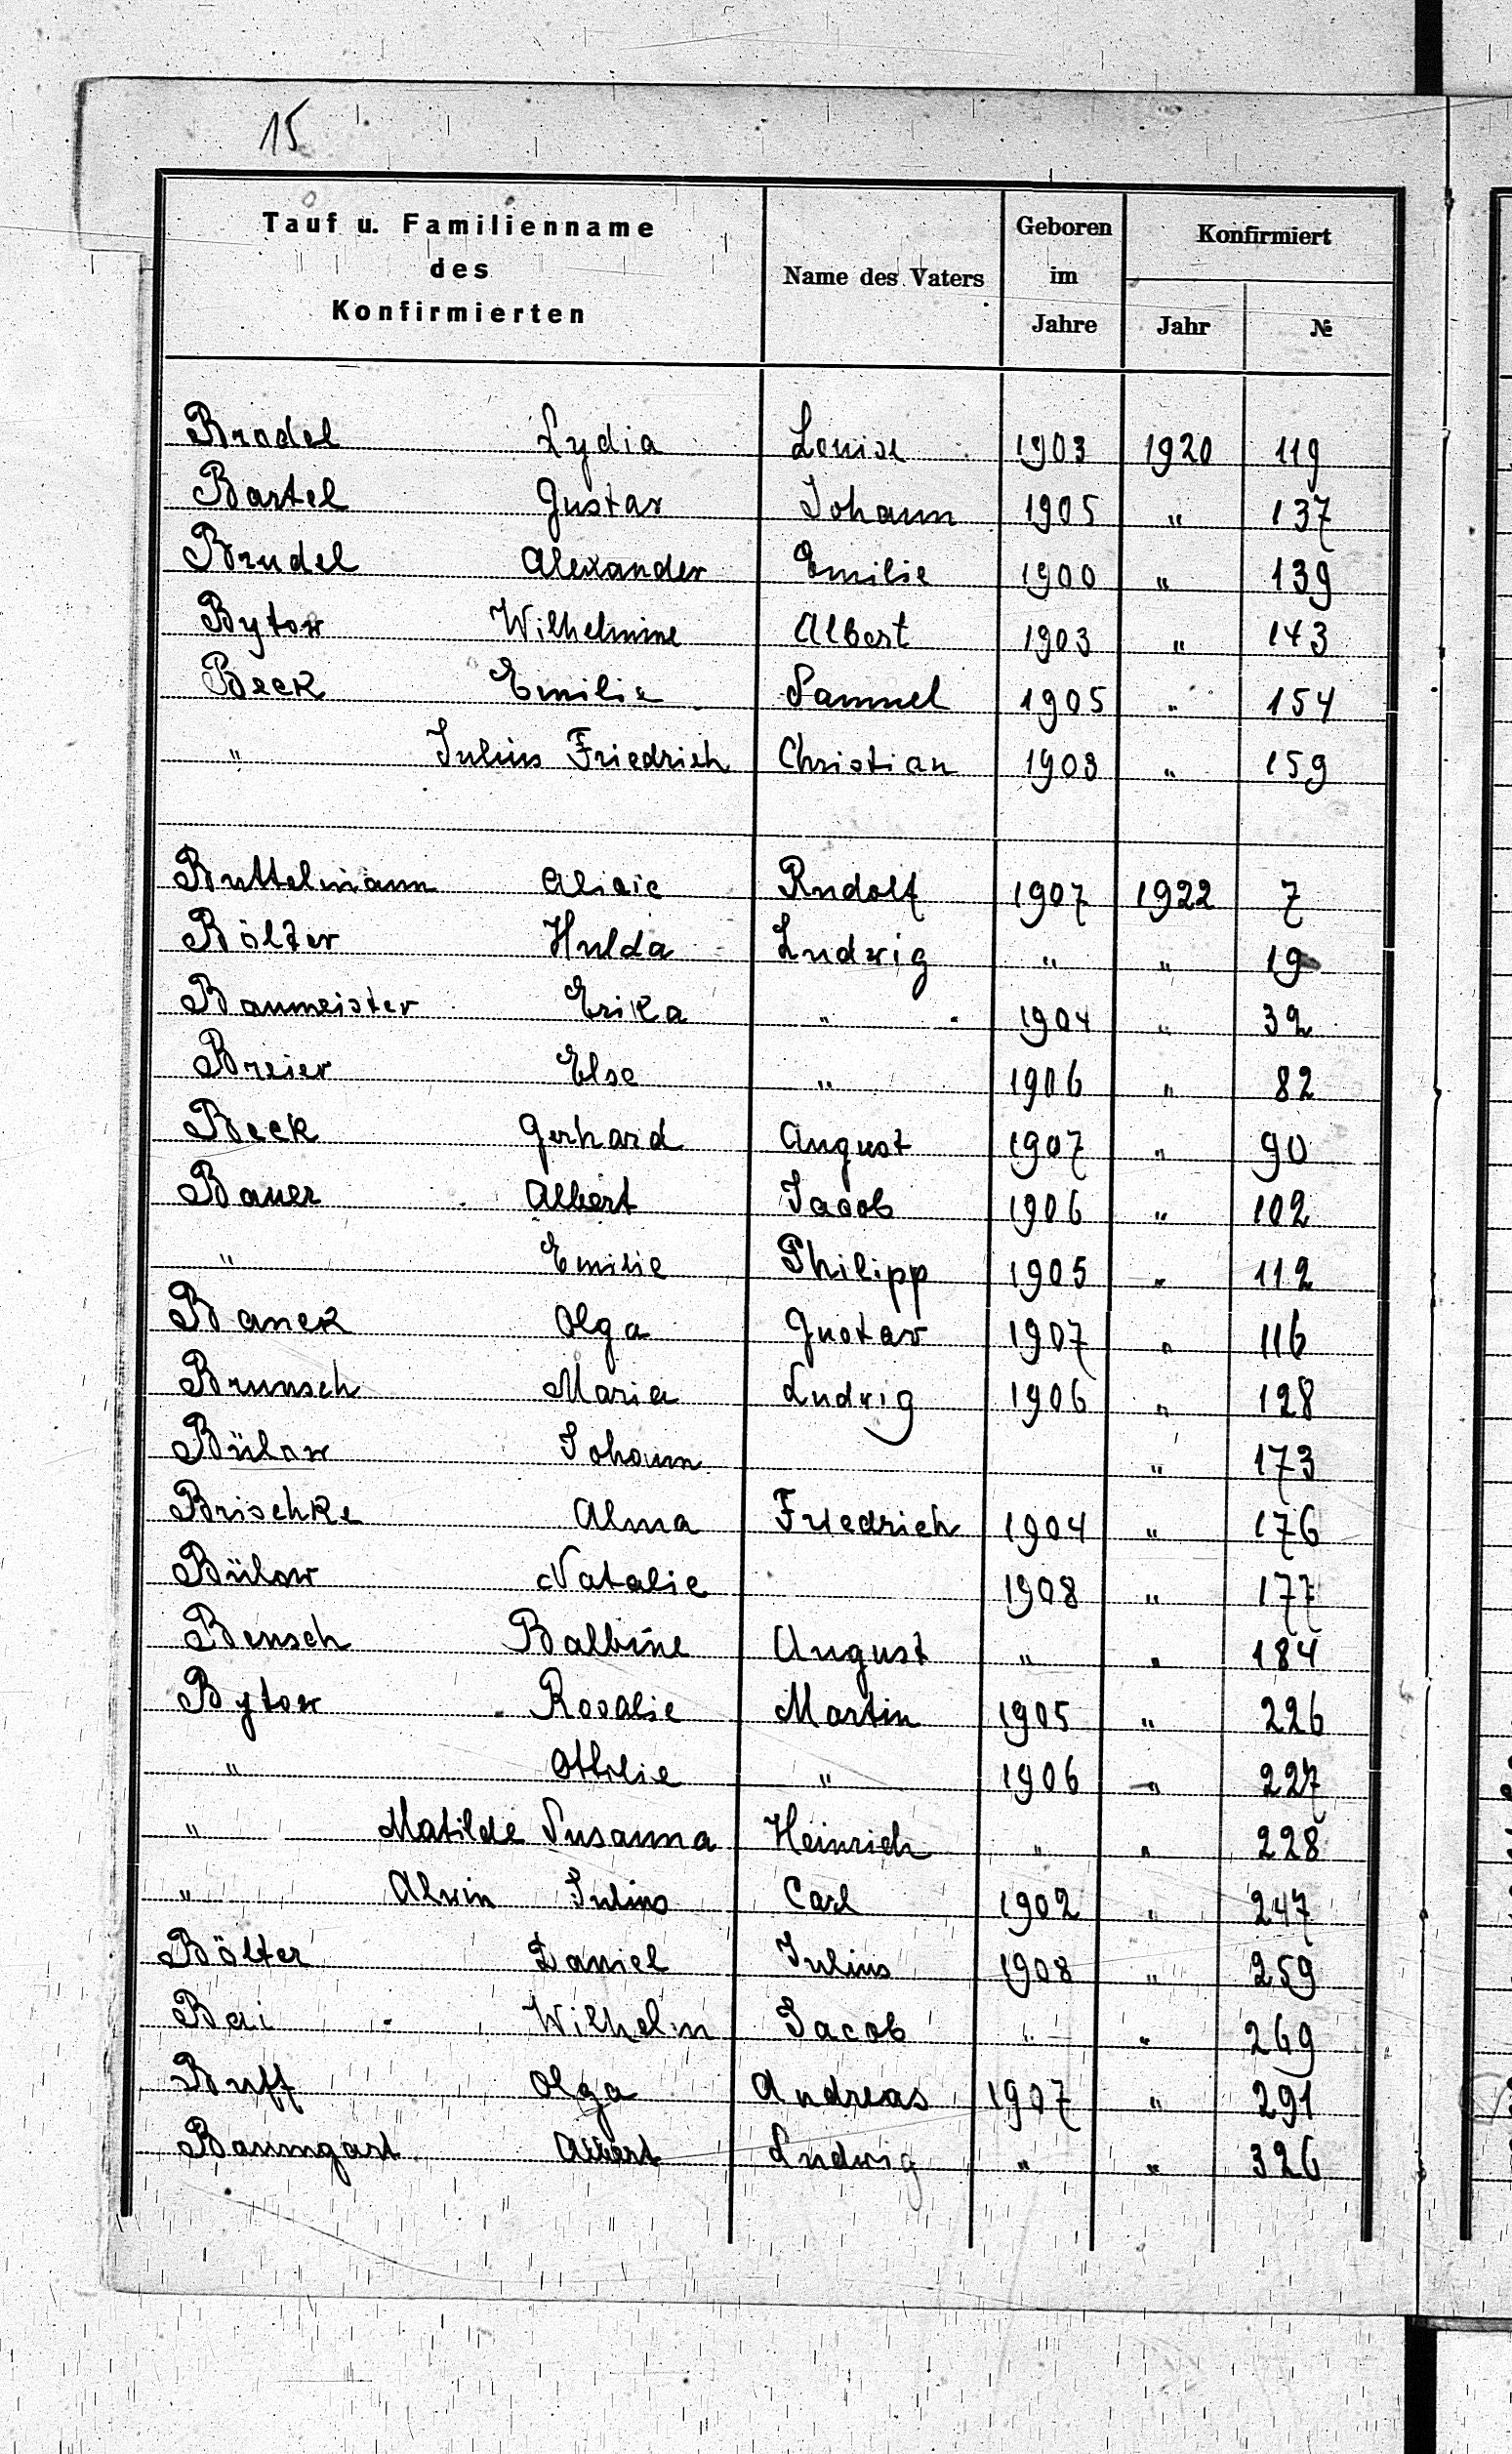 15
Tauf u. Familienname
des
Konfirmierten
Name des Vaters
Geboren
im
Jahre
Konfirmiert
Jahr
№
Brodel Lydia Louise 1903 1920 119
Bartel Gustav Johann 1905 " 137
Brudel Alexander Emilie 1900 " 139
Bytow Wilhelmine Albert 1903 " 143
Beck Emilie Samuel 1905 " 154
" Julius Friedrich Christian 1903 " 159
Buttelmann Rudolf 1907 1922 7
Bölter Hulda Ludwig " " 19
Baumeister Erika " 1904 " 32
Breier Else " 1906 " 82
Beck Gerhard August 1907 " 90
Bauer Albert Jacob 1906 " 102
" Emilie Philipp 1905 " 112
Banek Olga Gustav 1907 " 116
Brunsch Maria Ludwig 1906 " 128
Bülow Johann " 173
Brischke Alma Friedrich 1904 " 176
Bülow Natalie 1908 " 177
Bensch Balbine August " " 184
Bytow Rosalie Martin 1905 " 226
" Ottilie " 1906 " 227
" Matilde Susanna Heinrich " " 228
" Alwin Julius Carl 1902 " 247
Bölter Daniel Julius 1908 " 259
Bai Wilhelm Jacob " " 269
Buff Olga Andreas 1907 " 291
Baumgart Albert Ludwig " " 326